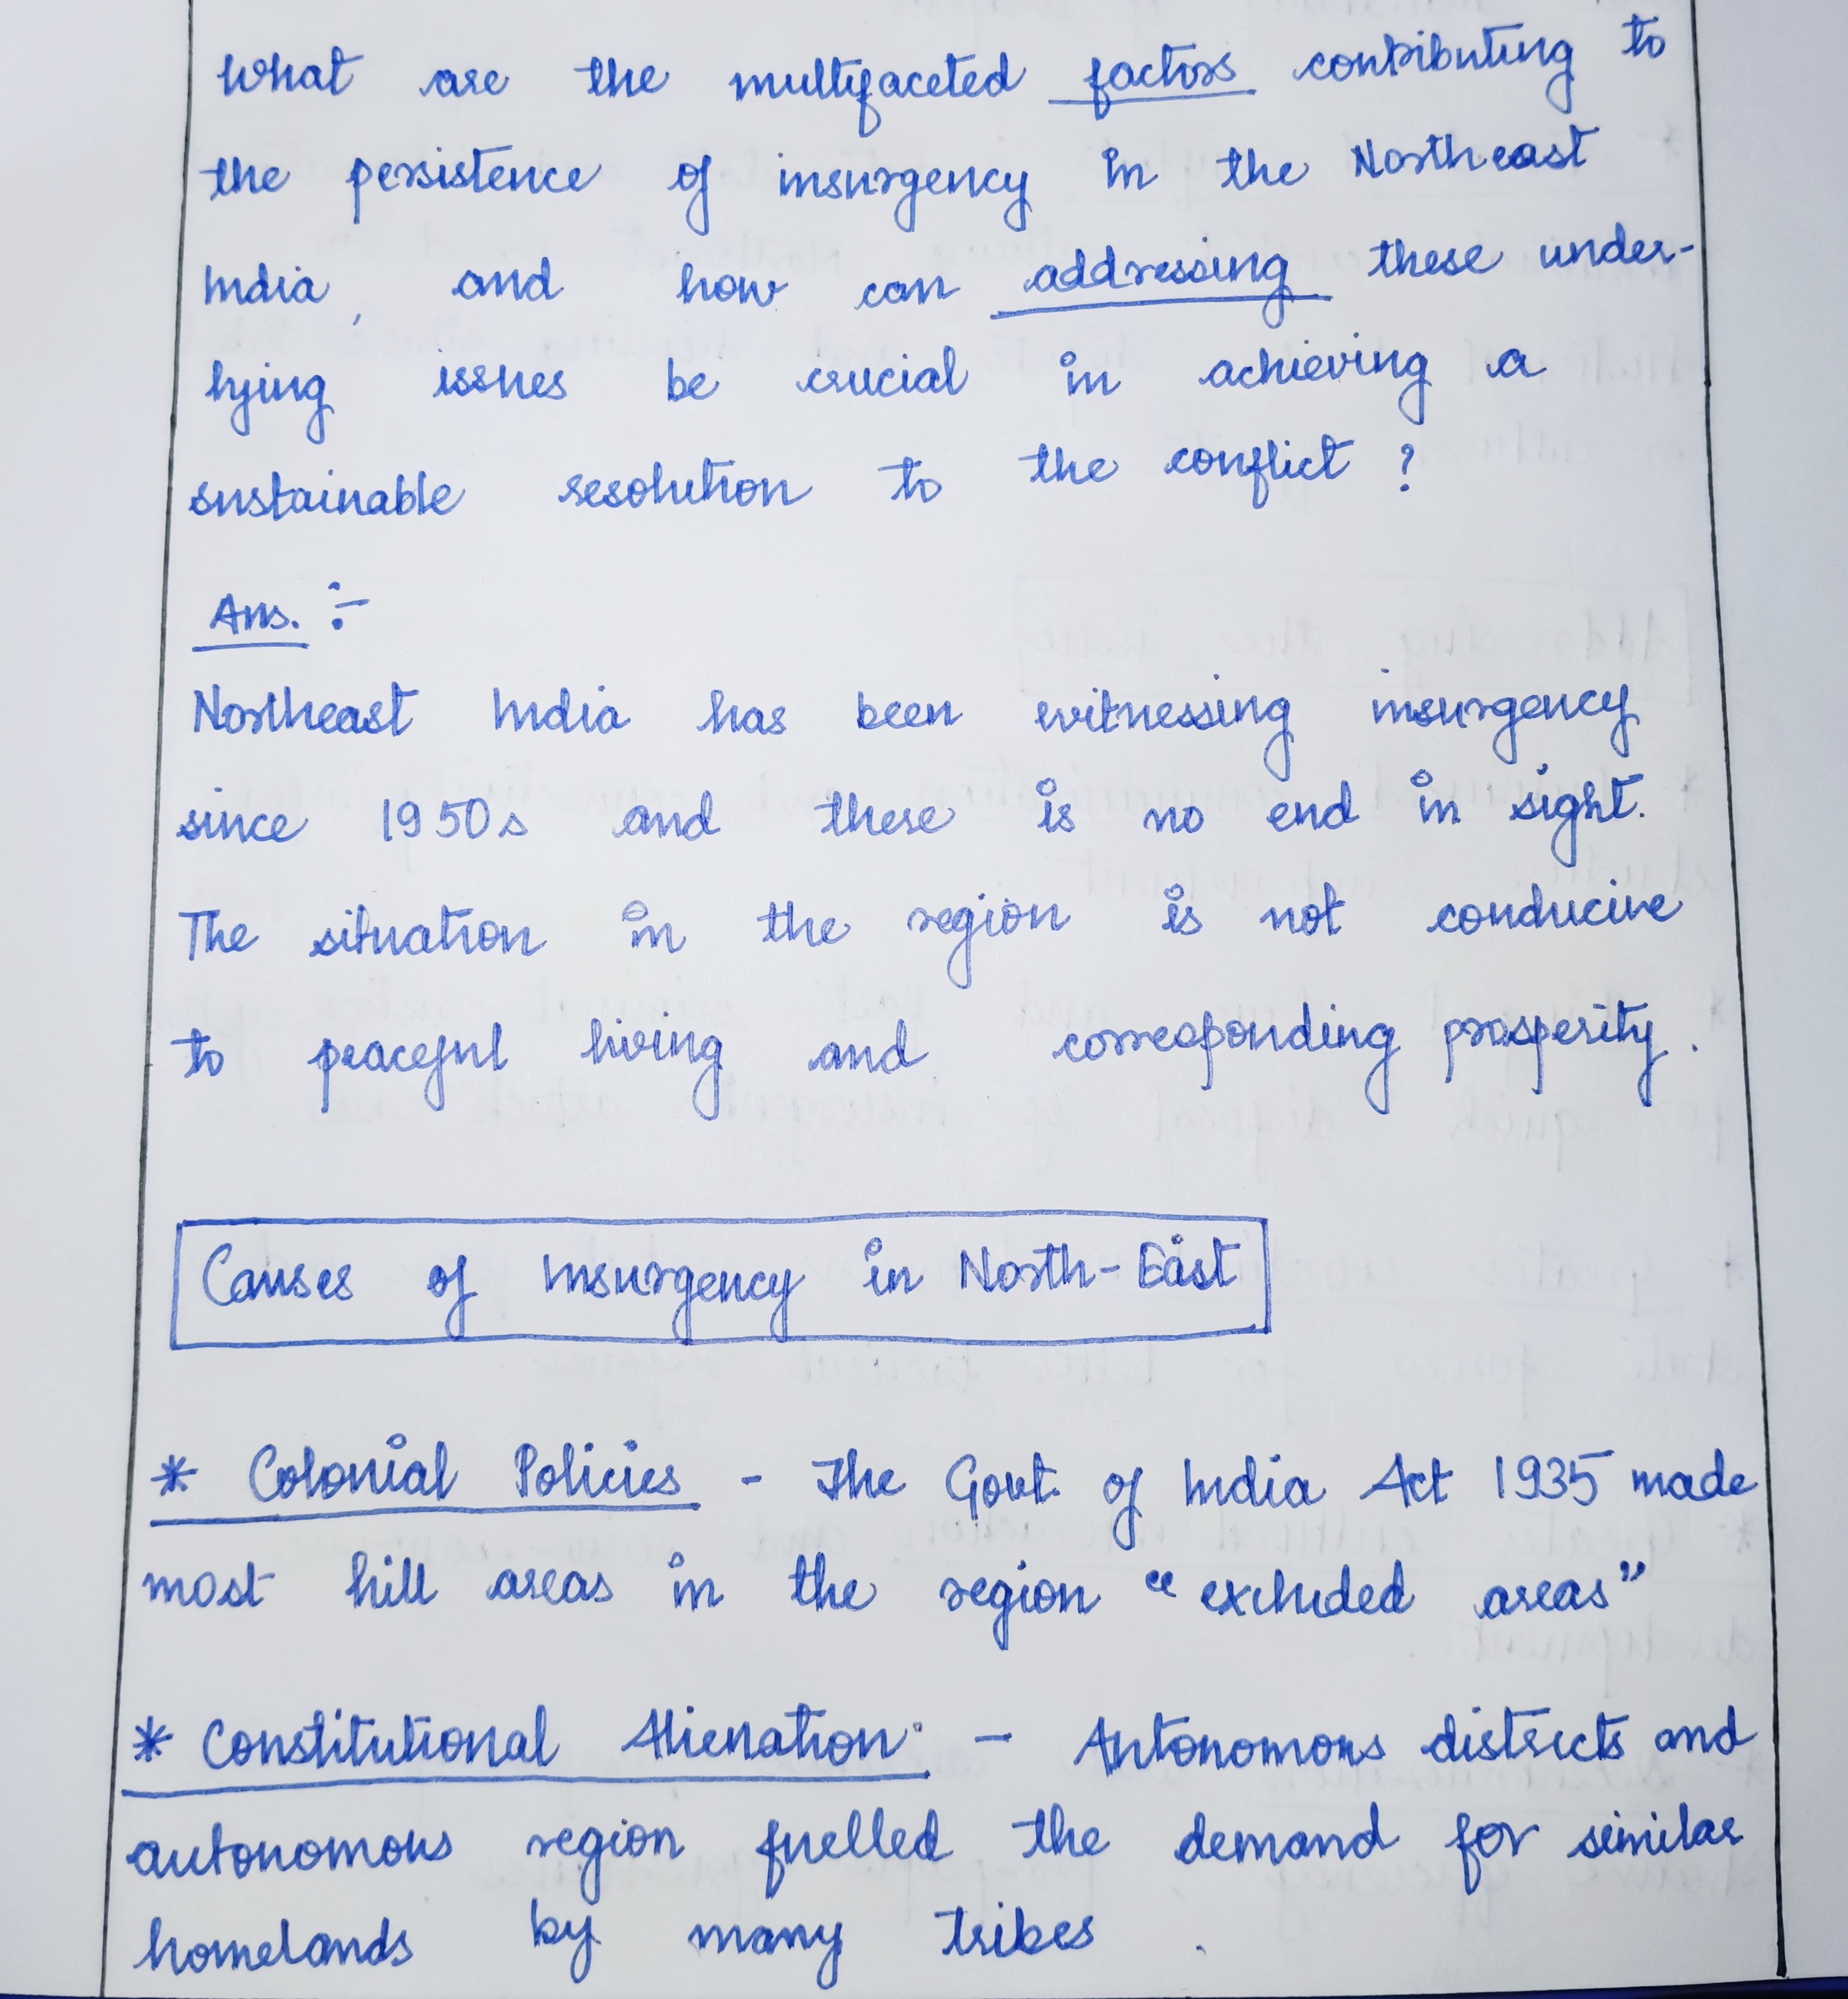 What are the multifaceted factors contributing to
the persistence of insurgency in the Northeast
India, and how can addressing these under-
lying issues be crucial in achieving a
sustainable resolution to the conflict ?
Ans. :-
Northeast India has been witnessing insurgency
since 1950s and there is no end in sight.
The situation in the region is not conducive
to peaceful living and corresponding prosperity.
Causes of Insurgency in North-East
* Colonial Policies - The Govt. of India Act 1935 made
most hill areas in the region "excluded areas"
* Constitutional Alienation - Autonomous districts and
autonomous region fuelled the demand for similar
homelands by many tribes.